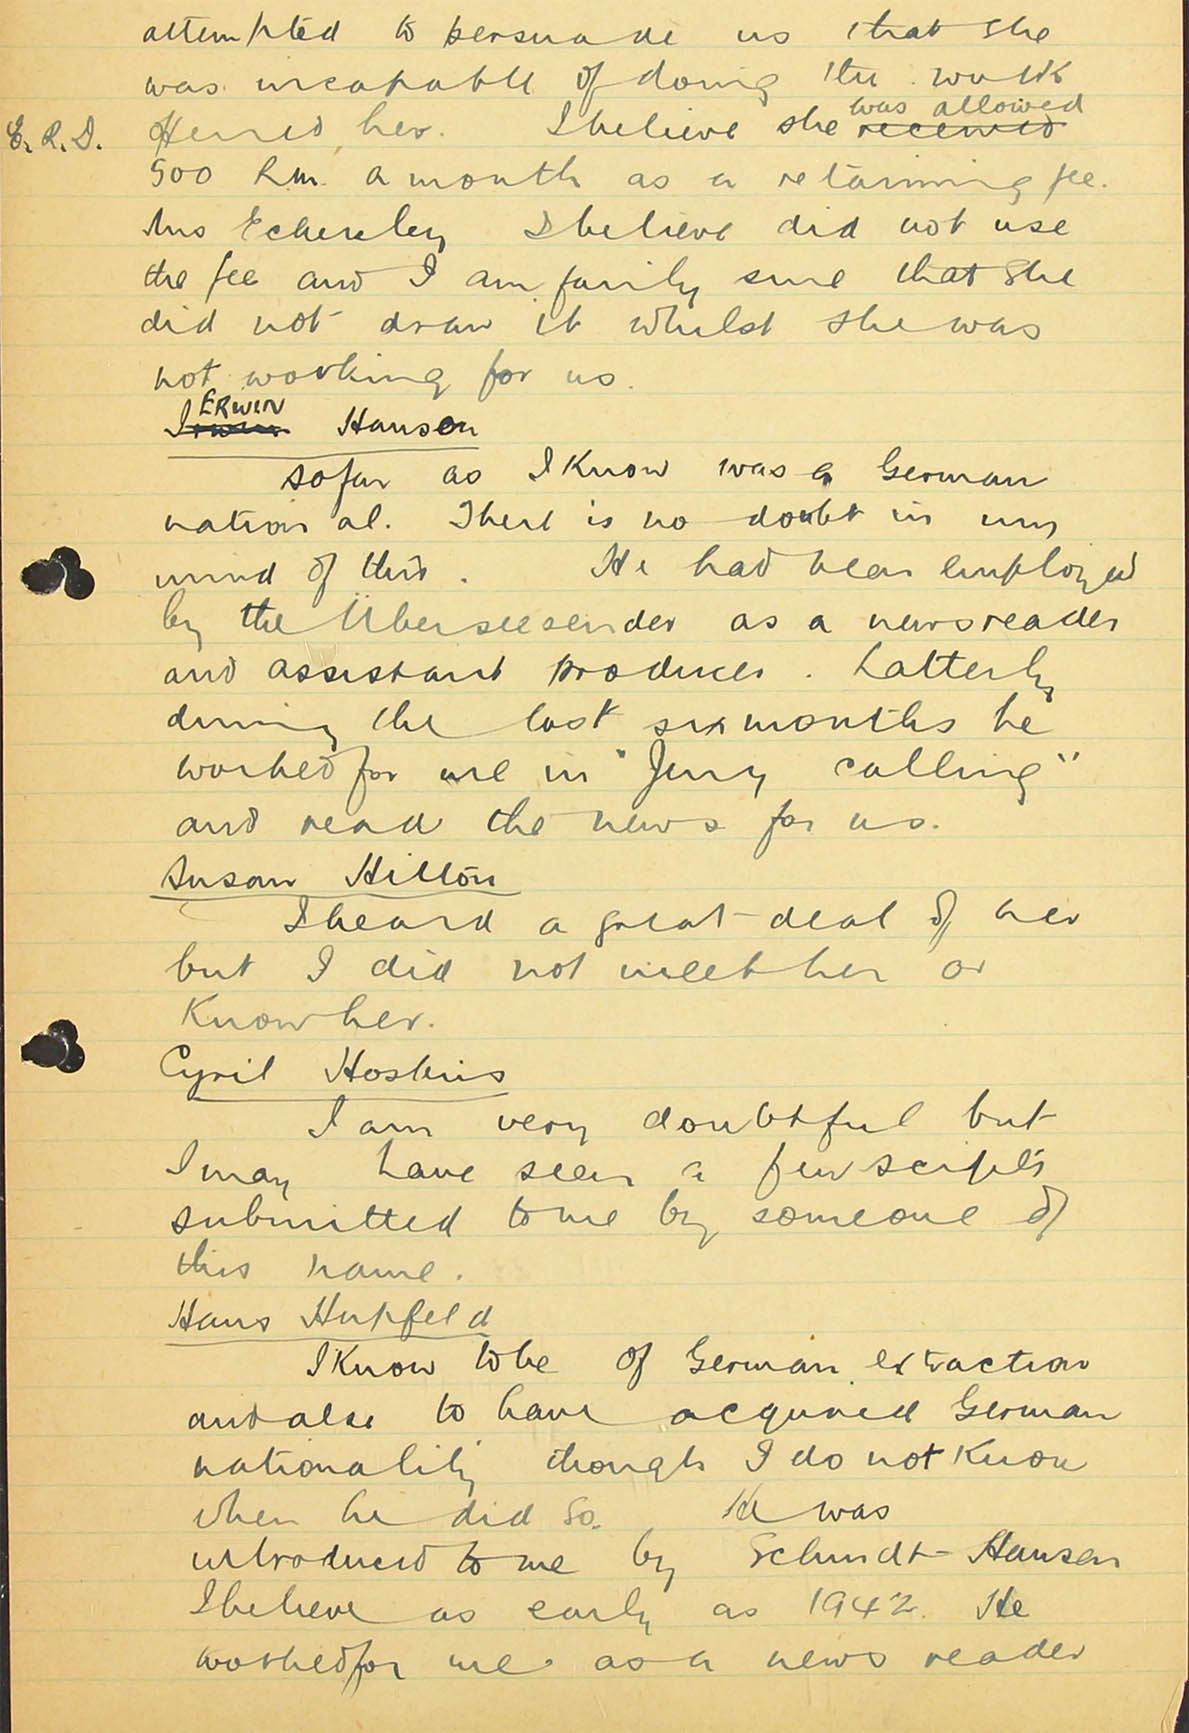 attempted to persuade us that she
was incapable of doing the work
was allowed
E. R. D. offered her. I believe she received
500 Rm. a month as a retaining fee.
Mrs Eckersley I believe did not use
the fee and I am fairly sure that she
did not draw it whilst she was
not working for us.
ERWIN
Irwin Hansen
so far as I know was a German
national. There is no doubt in my
mind of this. He had been employed
by the Überseesender as a newsreader
and assistant producer. Latterly
during the last six months he
worked for me in "Jerry calling"
and read the news for us.
Susan Hilton
I heard a great deal of her
but I did not meet her or
Know her.
Cyril Hoskins
I am very doubtful but
I may have seen a few scripts
submitted to me by someone of
this name.
Hans Hupfeld
I Know to be of German extraction
and also to have acquired German
nationality though I do not Know
when he did so. He was
introduced to me by Schmidt-Hansen
I believe as early as 1942. He
worked for me as a news reader